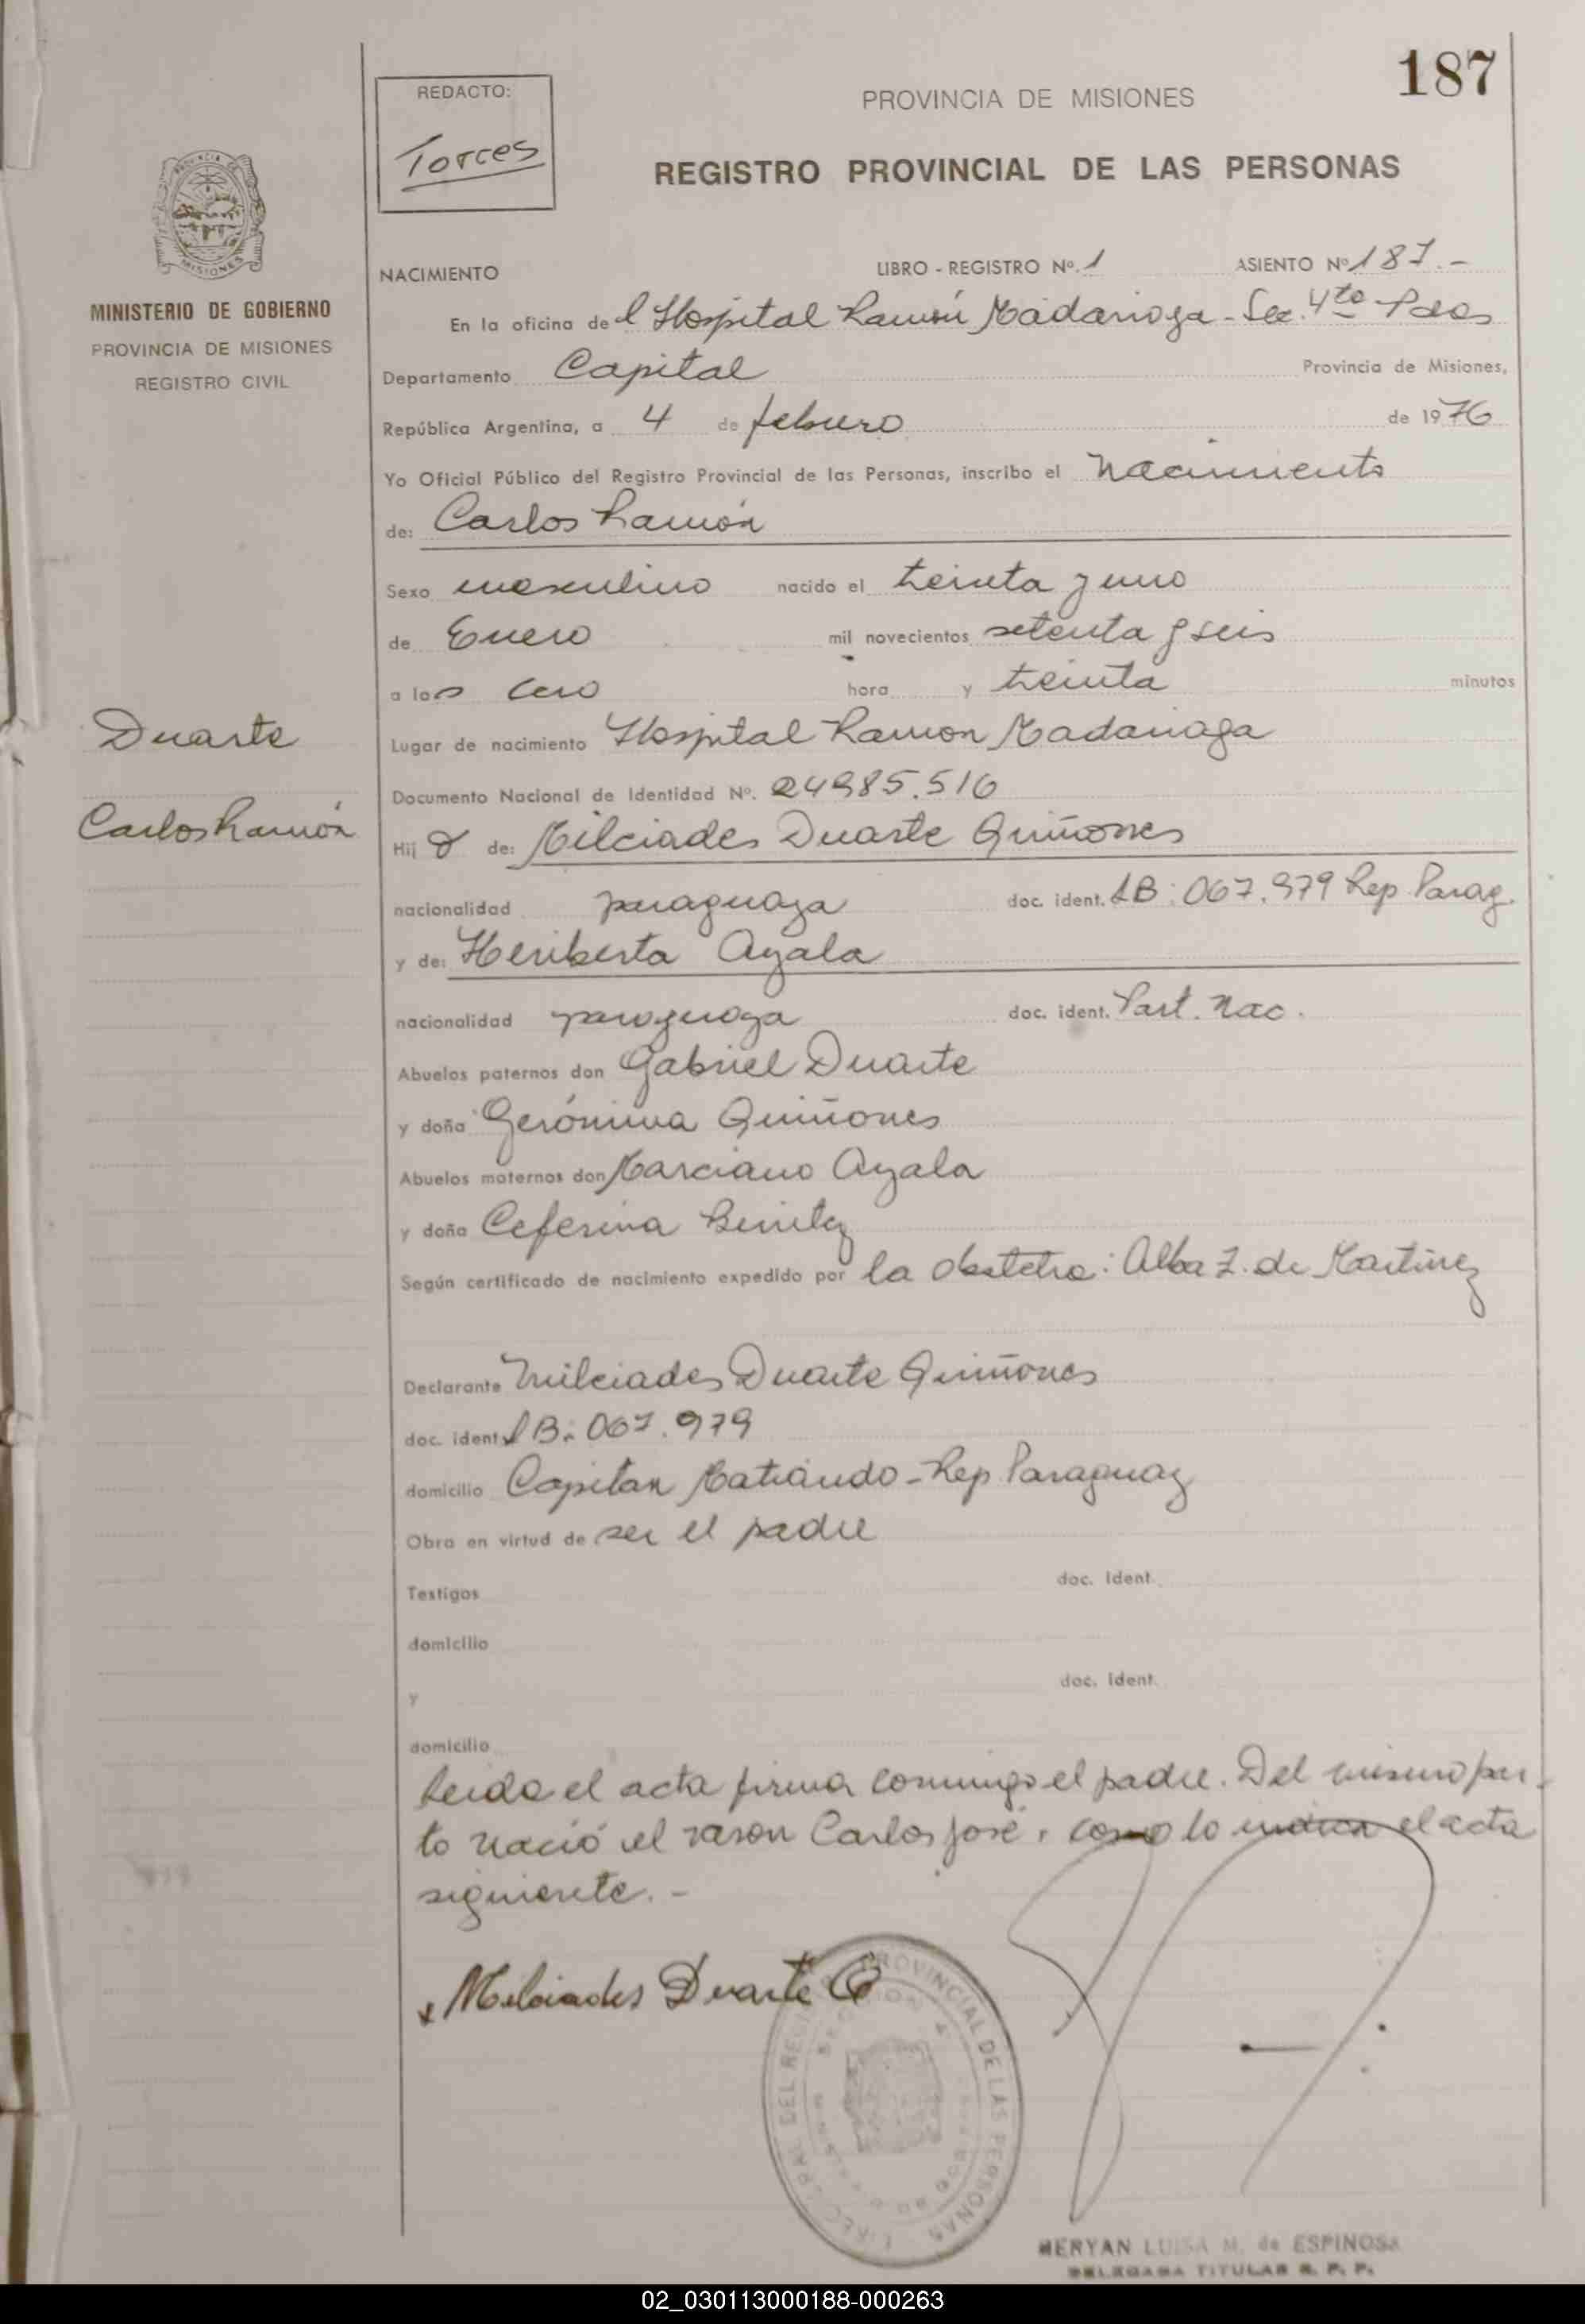 187
REDACTO:
Torres
PROVINCIA DE MISIONES
REGISTRO PROVINCIAL DE LAS PERSONAS
MISIONES
MINISTERIO DE GOBIERNO
PROVINCIA DE MISIONES
REGISTRO CIVIL
NACIMIENTO LIBRO - REGISTRO Nº. 1 ASIENTO Nº 187.-
En la oficina del Hospital Ramón Madariaga - Sec. 4ta Pdas
Departamento Capital Provincia de Misiones,
República Argentina, a 4 de febrero de 1976
Yo Oficial Público del Registro Provincial de las Personas, inscribo el nacimiento
de: Carlos Ramón
Sexo masculino nacido el treinta y uno
de Enero mil novecientos setenta y seis
a las cero hora y treinta minutos
Duarte
Carlos Ramón
Lugar de nacimiento Hospital Ramon Madariaga
Documento Nacional de Identidad Nº. 24985.516
Hijo de: Milciades Duarte Quiñones
nacionalidad paraguaya doc. ident. LB: 067.979 Rep Parag.
y de: Heriberta Ayala
nacionalidad paraguaya doc. ident. Part. Nac.
Abuelos paternos don Gabriel Duarte
y doña Gerónima Quiñones
Abuelos maternos don Marciano Ayala
y doña Ceferina Benitez
Según certificado de nacimiento expedido por la obstetra: Alba Z. de Martinez
Declarante Milciades Duarte Quiñones
doc. ident. LB: 067.979
domicilio Capitan Matiaudo - Rep Paraguay
Obra en virtud de ser el padre
Testigos doc. ident.
domicilio
y doc. ident.
domicilio
Leida el acta firma conmigo el padre. Del mismo par-
to nació el varon Carlos José, como lo indica el acta
siguiente.-
x Melciades Duarte Q
PROVINCIAL DE LAS PERSONAS
MERYAN LUISA M. de ESPINOSA
DELEGADA TITULAR R. P. P.
02_030113000188-000263